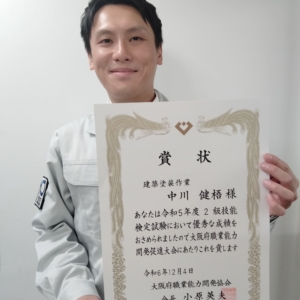 賞状
建築塗装作業
中川 健梧 様
あなたは令和5年度2級技能
検定試験において優秀な成績を
おさめられましたので大阪府職業能力
開発促進大会にあたりこれを賞します
令和6年12月4日
大阪府職業能力開発協会
会長 小原英夫